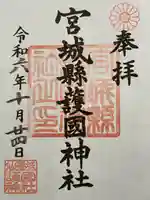 奉拝
宮城縣護國神社
令和六年十月廿四日